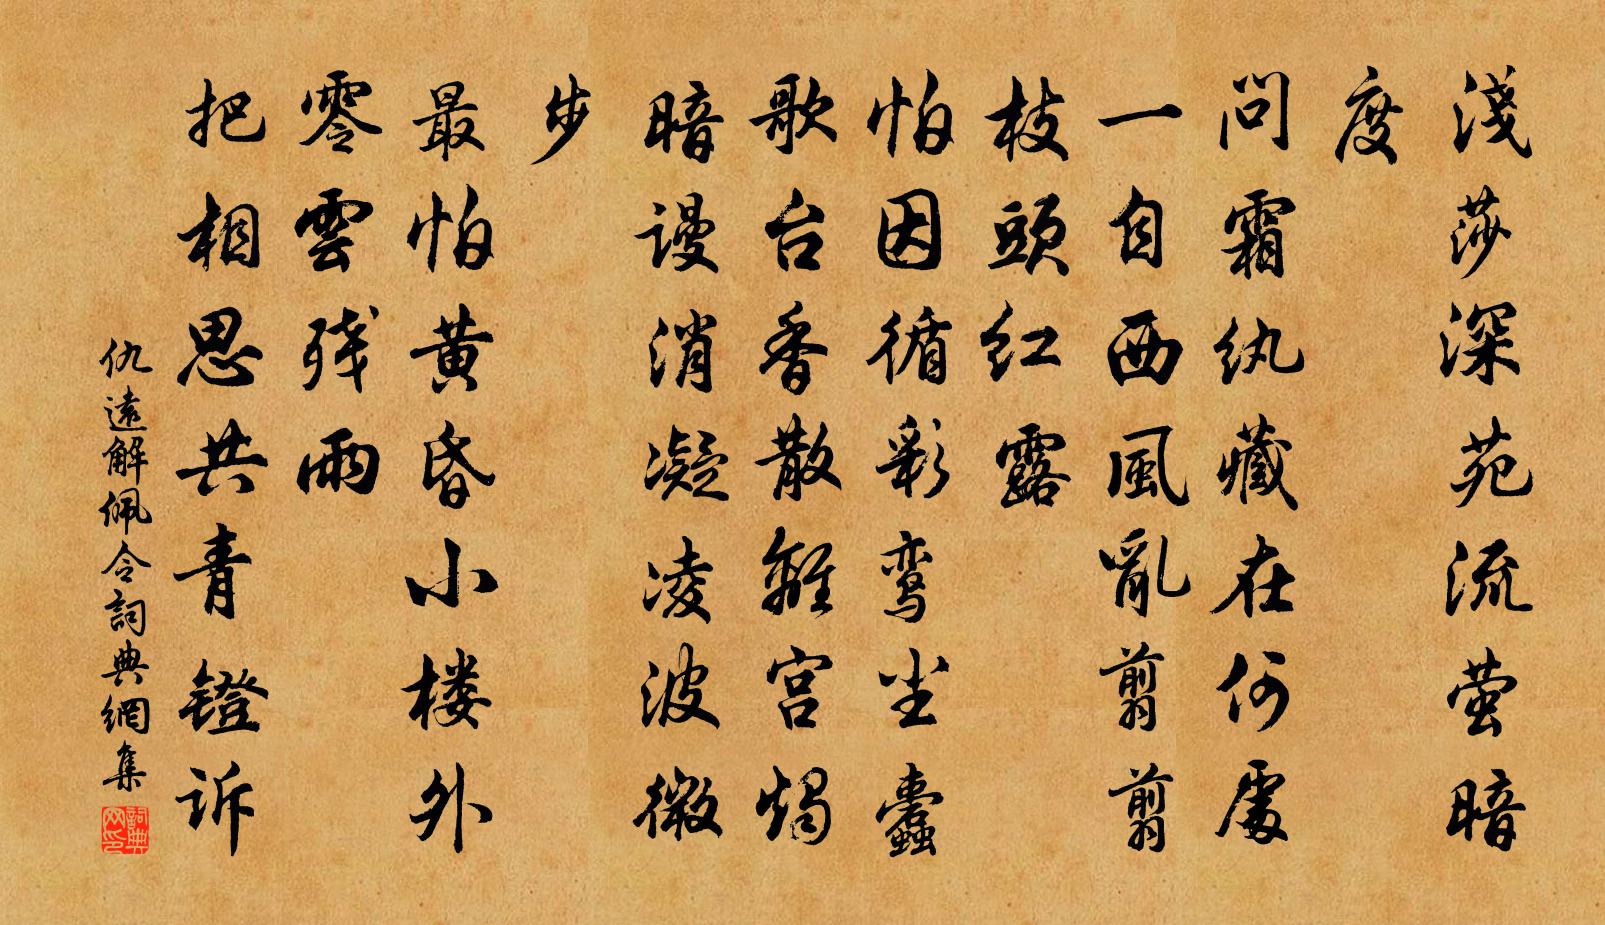 淺莎深苑流萤暗
度
問霜纨藏在何處
一自西風亂翦翦
枝頭红露
怕因循彩鸾尘蠹
歌台香散離宫燭
暗谩消凝凌波微
步
最怕黄昏小楼外
零雲残雨
把相思共青鐙訴
仇遠解佩令詞典網集
詞典网印